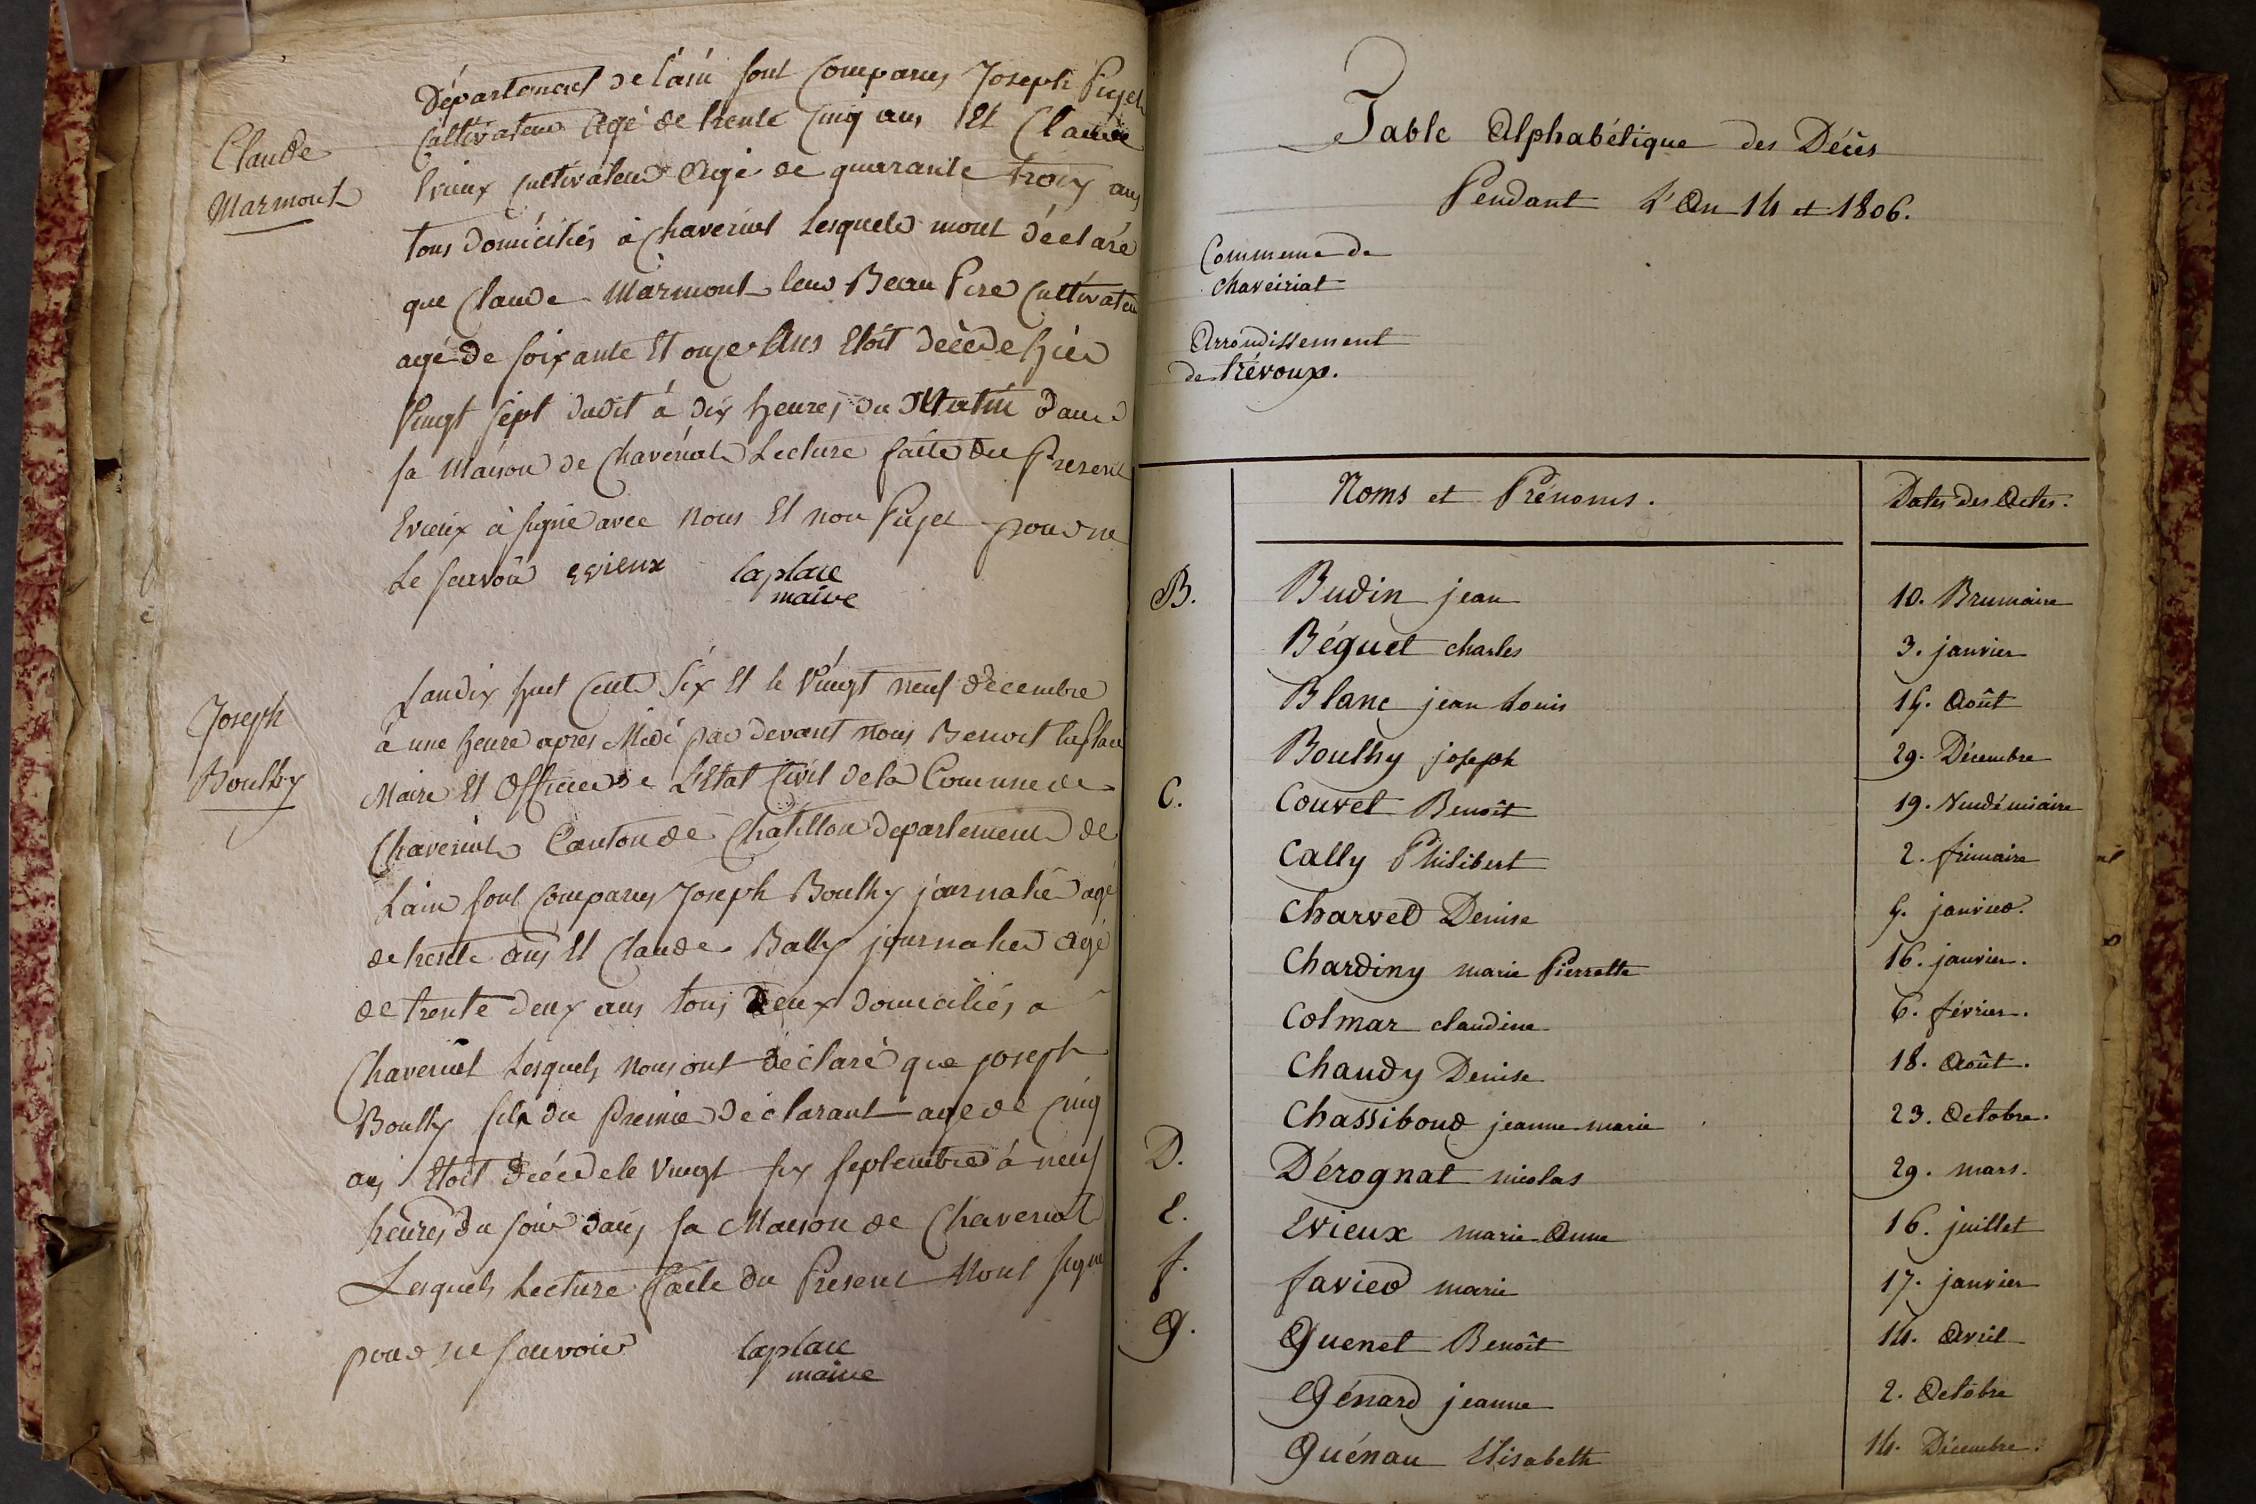 Claude
Marmont
Département de Lain sont comparus Joseph Pujet
Cultivateur Agé de trente Cinq ans Et Claude
Evieux Cultivateur Agé de quarante trois ans
tous domiciliés à Chaveriat Lesquels mont déclaré
que Claude Marmont leur Beau Pere Cultivateur
agé de soixante Et onze Ans Etoit décéde hier
Vingt sept dudit à dix heures du Matin dans
sa Maison de Chaveriat Lecture faite du Present
Evieux à signé avec Nous Et non Pujet pour ne
Le savoir evieux laplace
maire
Joseph
Bouthy
Landix huit Cent Six Et le Vingt neuf décembre
à une heure apres Midi par devant nous Benoit laplace
Maire Et Officier de L'Etat Civil de la Commune de
Chaveriat Canton de Chatillon département de
Lain sont comparus Joseph Bouthy journalié agé
de trente ans Et Claude Bally journalier Agé
de trente deux ans tous deux domiciliés a
Chaveriat Lesquels nous ont déclaré que joseph
Bouthy fils du Premier déclarant age de cinq
ans Etoit décéde le Vingt six septembre à neuf
heures du soir dans sa Maison de Chaveriat
Lesquels Lecture faite du Present Nont signé
pour ne savoir laplace
maire
Table Alphabétique des Décès
Pendant L'An 14 et 1806.
Commune de
chaveiriat
Arrondissement
de trévoux.
Noms et Prénoms. Dates des Actes.
B. Budin jean 10. Brumaire
Béguet charles 3. janvier
Blanc jean Louis 15. Août
Bouthy joseph 29. Décembre
C. Couvet Benoît 19. Vendémiaire
Cally Philibert 2. frimaire
Charvet Denise 5. janvier.
Chardiny marie Pierrette 16. janvier.
Colmar claudine 6. février.
Chaudy Denise 18. Août.
Chassiboud jeanne marie 23. Octobre.
D. Dérognat nicolas 29. mars.
E. Evieux marie Anne 16. juillet
f. favier marie 17. janvier
G. Guenet Benoît 14. Avril
Génard jeanne 2. Octobre
Guénau Elisabeth 14. Décembre.